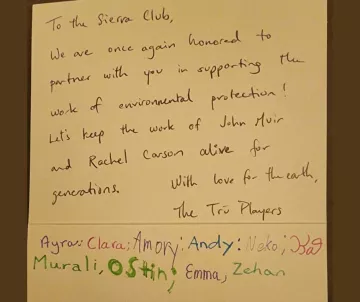 To the Sierra Club,
We are once again honored to
partner with you in supporting the
work of environmental protection!
Let's keep the work of John Muir
and Rachel Carson alive for
generations.
With love for the earth,
The Trū Players
Ayra: Clara: Amory: Andy: Neko:
Murali, OStin, Emma, Zehan